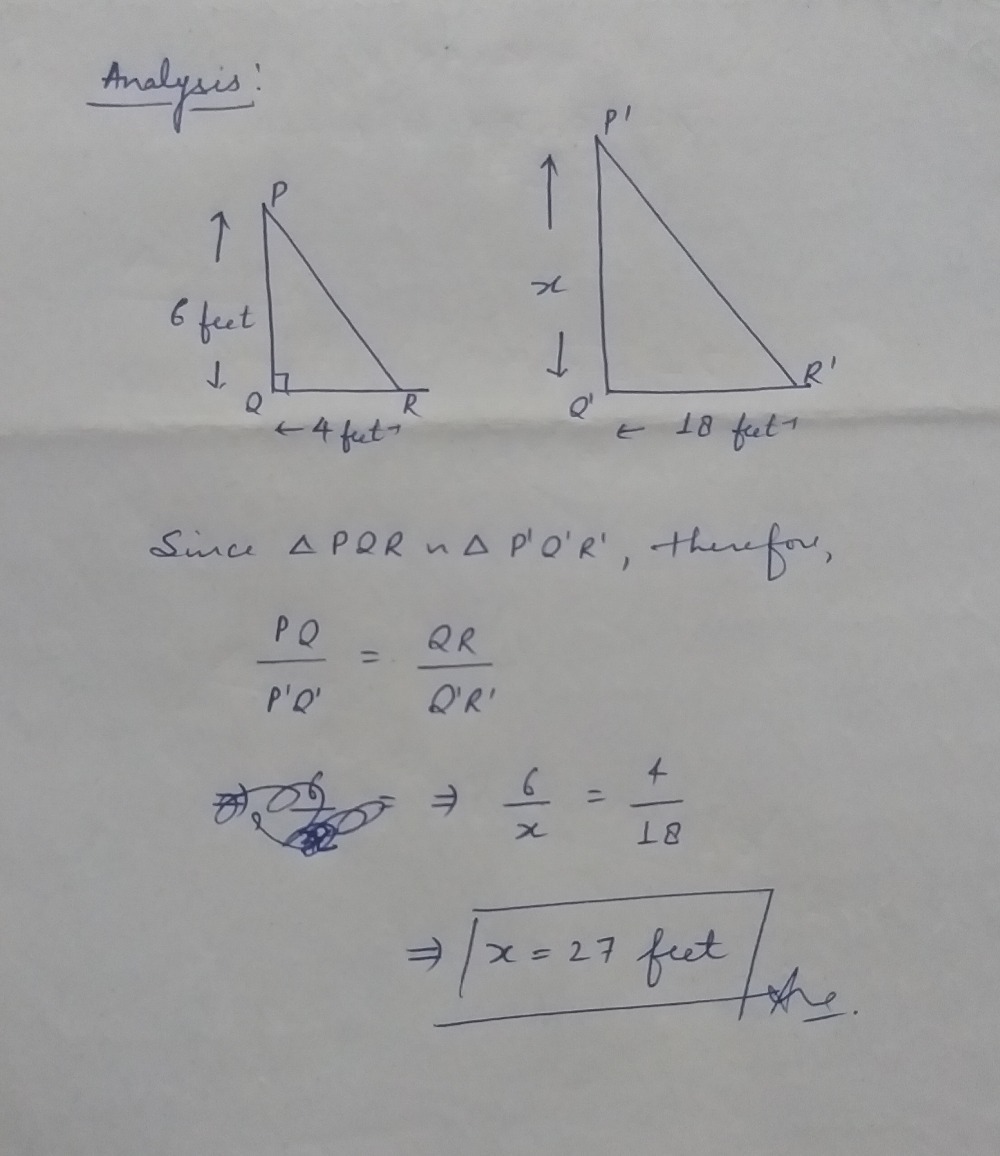 Analysis:
P
P'
6 feet
x
Q
R
Q'
R'
← 4 feet →
← 18 feet →
Since Δ PQR ~ Δ P'Q'R', therefore,
PQ/P'Q' = QR/Q'R'
⇒ 6/x = 4/18
⇒ x = 27 feet Ans.